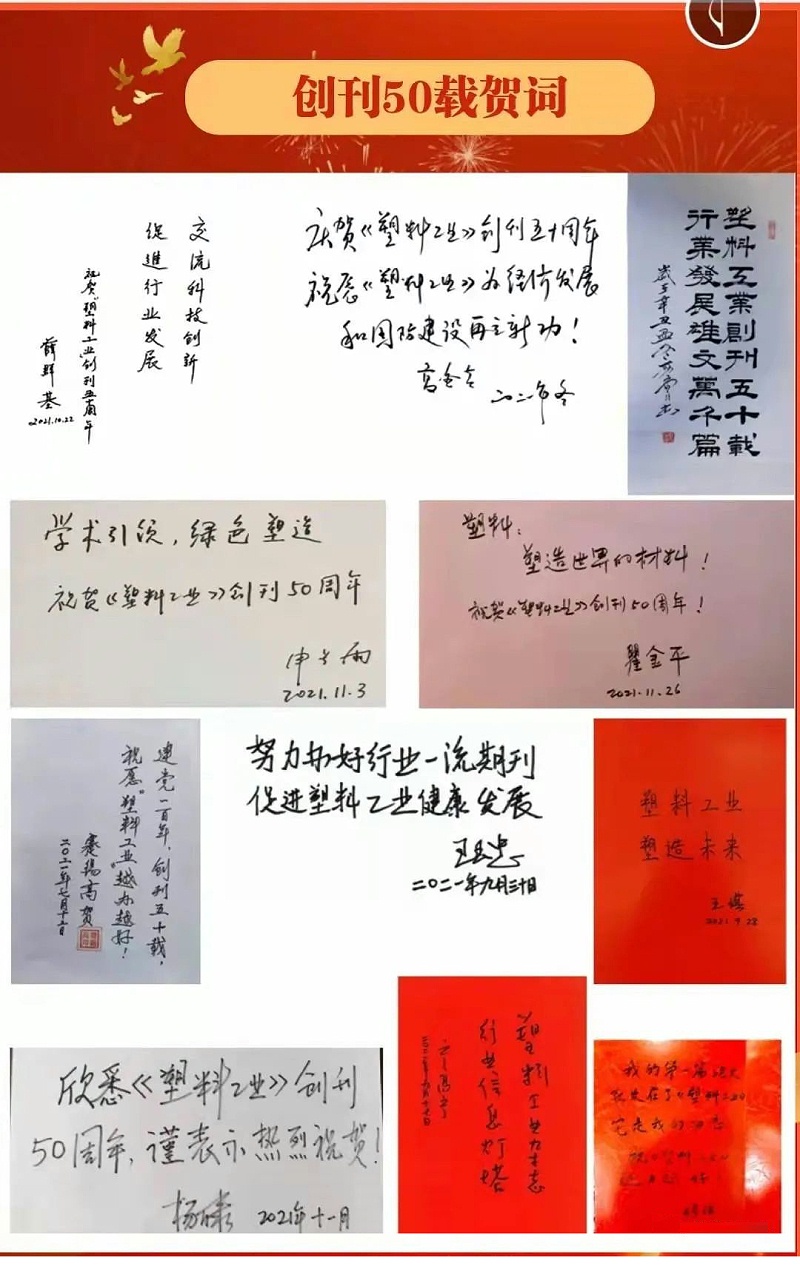 创刊50载贺词
交流科技创新
促進行业发展
祝贺“塑料工业”创刊五十周年
薛群基
2021.10.22
庆贺《塑料工业》创刊五十周年
祝愿《塑料工业》为经济发展
和国防建设再立新功！
二〇二一年冬
塑料工業創刊五十载
行業發展雄文萬千篇
学术引领，绿色塑造
祝贺《塑料工业》创刊50周年
2021.11.3
塑料：
塑造世界的材料！
祝贺《塑料工业》创刊50周年！
瞿金平
2021.11.26
建党一百年，创刊五十载，
祝愿“塑料工业”越办越好！
蹇锡高贺
二〇二一年七月十二日
努力办好行业一流期刊
促进塑料工业健康发展
王玉忠
二〇二一年九月三十日
塑料工业
塑造未来
王琪
2021.9.28
欣悉《塑料工业》创刊
50周年，谨表示热烈祝贺！
2021年十一月
塑料工业力士志
行业信息灯塔
我的第一篇论文